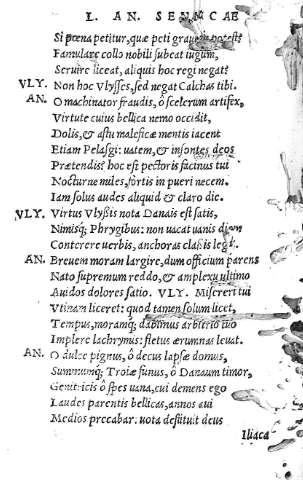 L. AN. SENECAE
Si pœna petitur, quæ peti grauior potest?
Famulare collo nobili subeat iugum,
Seruire liceat, aliquis hoc regi negat?
VLY. Non hoc Vlysses, sed negat Calchas tibi.
AN. O machinator fraudis, ô scelerum artifex,
Virtute cuius bellica nemo occidit,
Dolis, & astu maleficæ mentis iacent
Etiam Pelasgi: uatem, & insontes deos
Prætendis? hoc est pectoris facinus tui
Nocturne miles, fortis in pueri necem.
Iam solus audes aliquid & claro die.
VLY. Virtus Vlyssis nota Danais est satis,
Nimisq; Phrygibus: non uacat uanis diem
Conterere uerbis, anchoras classis legit.
AN. Breuem moram largire, dum officium parens
Nato supremum reddo, & amplexu ultimo
Auidos dolores satio. VLY. Misereri tui
Vtinam liceret: quod tamen solum licet,
Tempus, moramq; dabimus arbitrio tuo
Implere lachrymis: fletus ærumnas leuat.
AN. O dulce pignus, ô decus lapsæ domus,
Summumq; Troiæ funus, ô Danaum timor,
Genitricis ô spes uana, cui demens ego
Laudes parentis bellicas, annos aui
Medios precabar: uota destituit deus
Iliaca